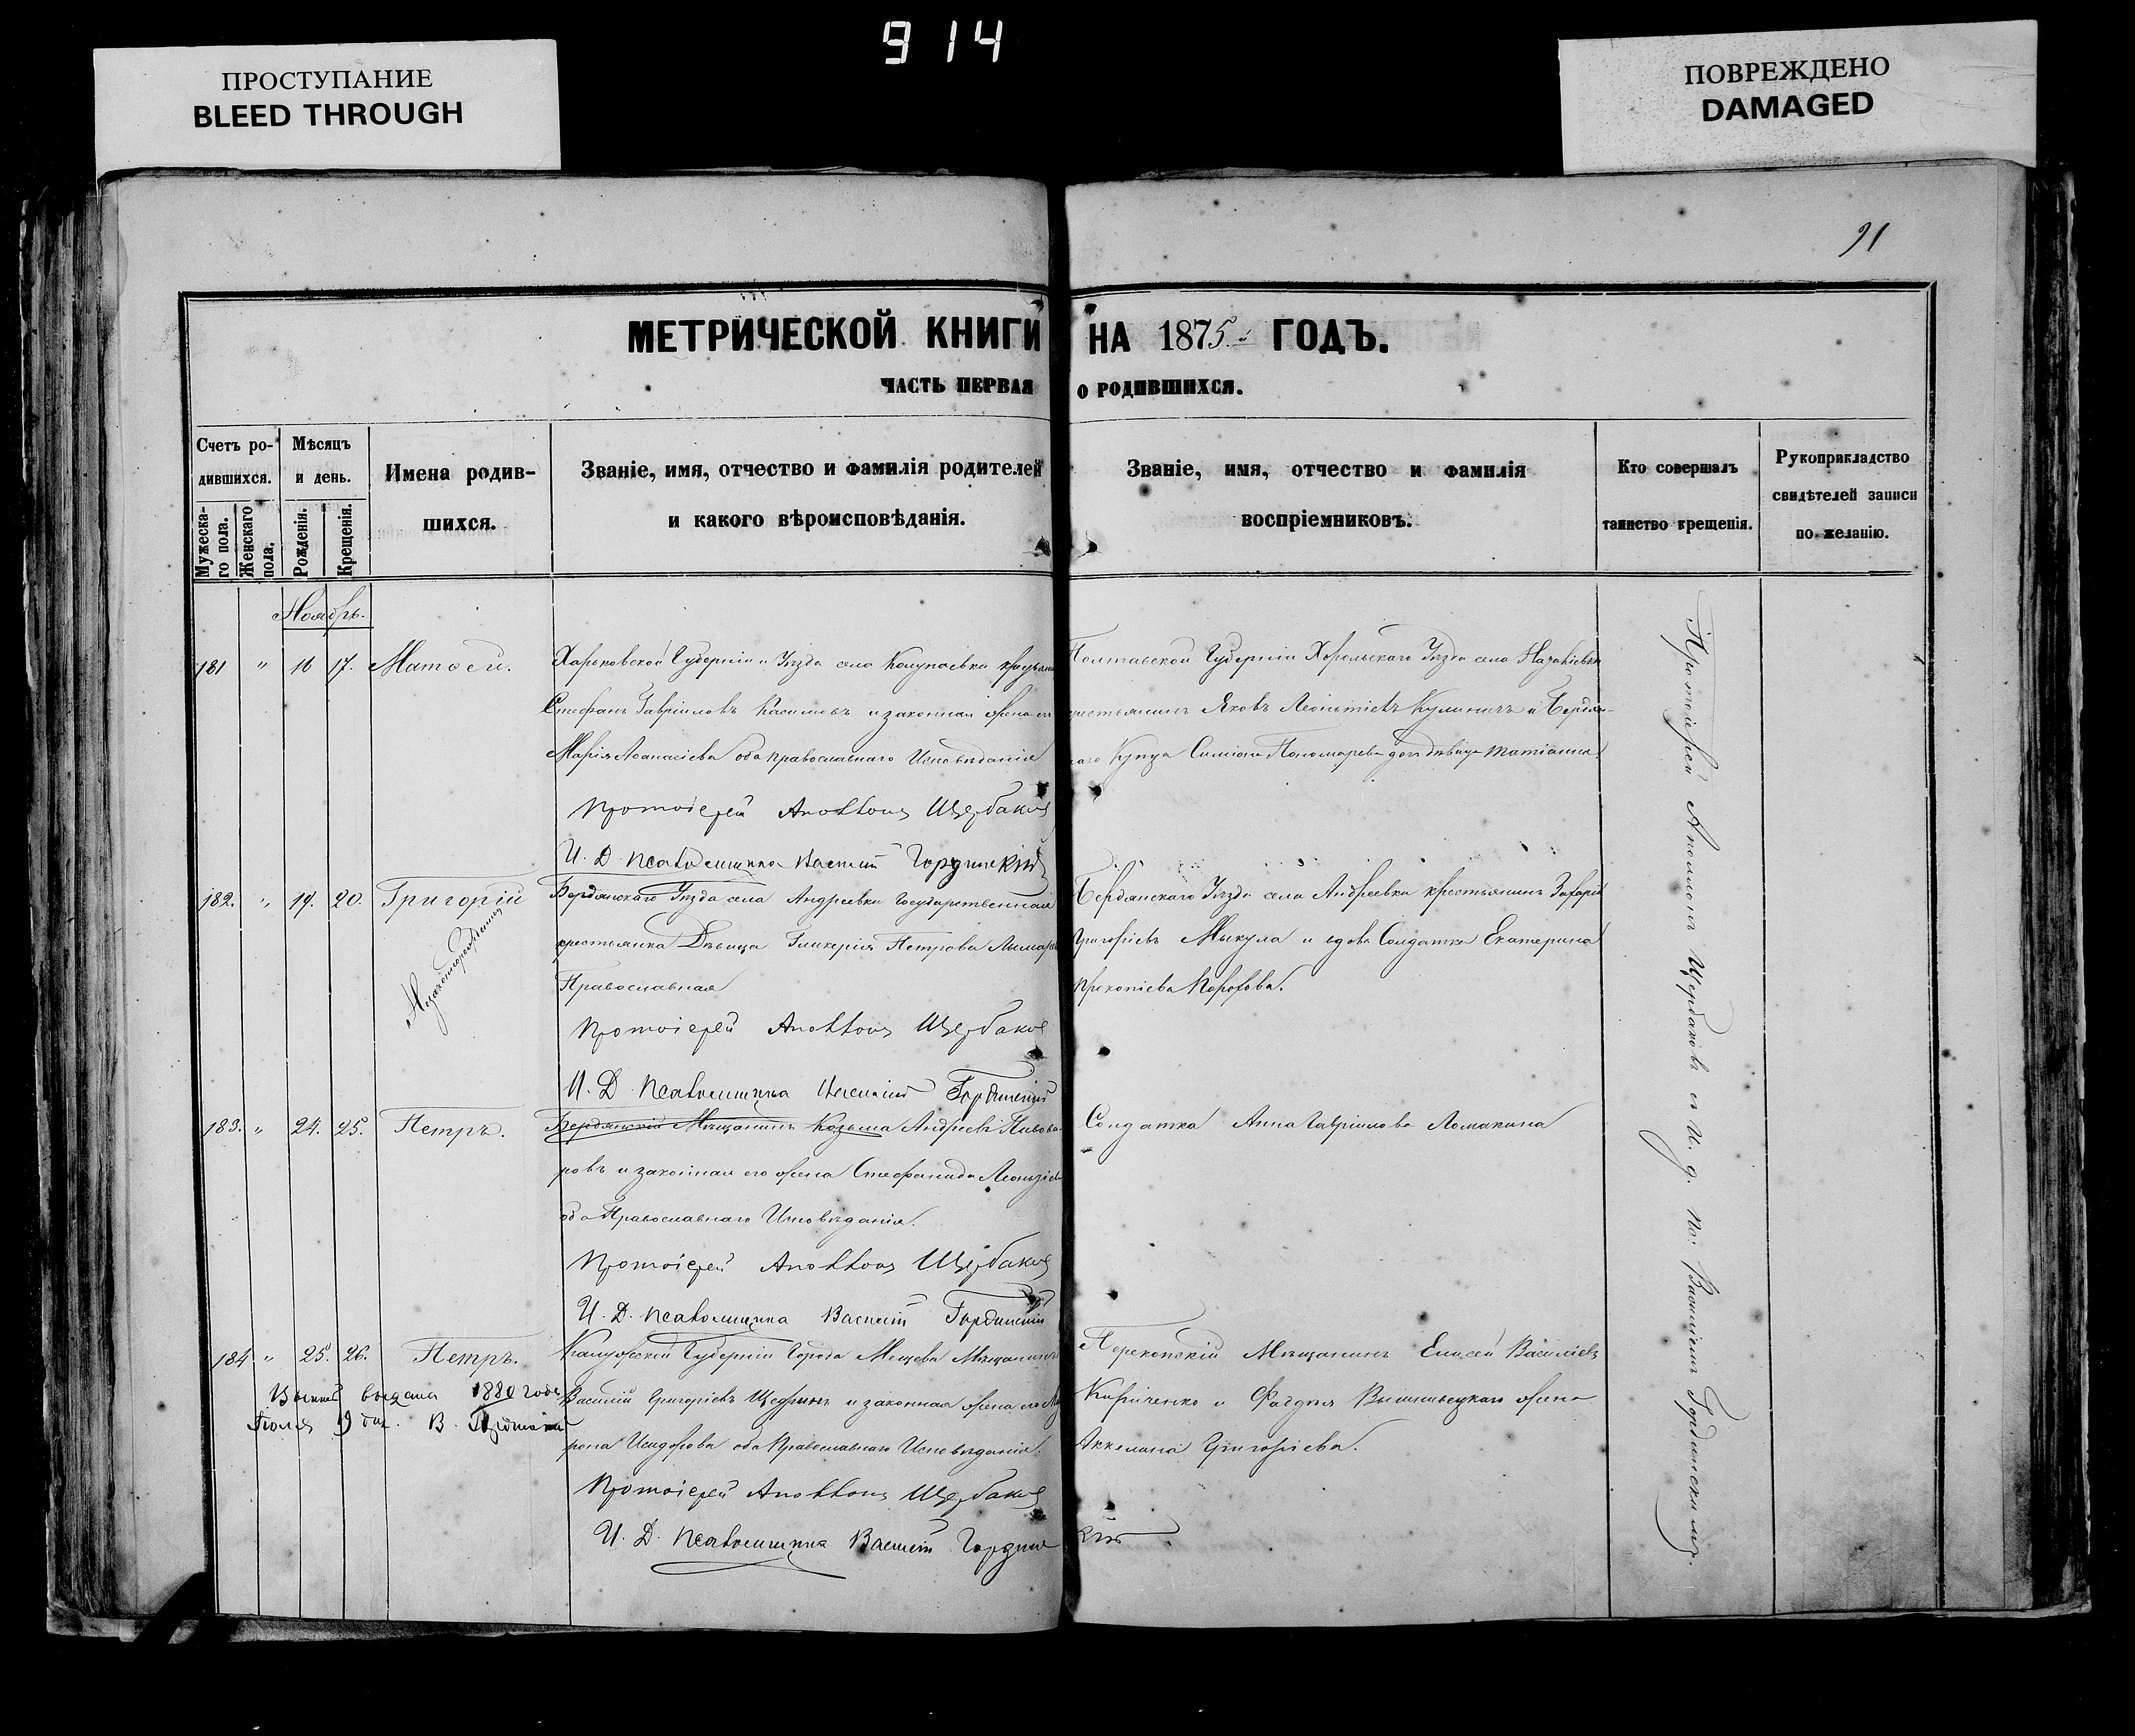 914
ПРОСТУПАНИЕ
BLEED THROUGH
ПОВРЕЖДЕНО
DAMAGED
91
МЕТРИЧЕСКОЙ КНИГИ НА 1875 ГОДЪ.
ЧАСТЬ ПЕРВАЯ О РОДИВШИХСЯ.
Счетъ ро-
дившихся.
Мужеска-
го пола.
Женскаго
пола.
Мѣсяцъ
и день.
Рожденія.
Крещенія.
Имена родив-
шихся.
Званіе, имя, отчество и фамилія родителей
и какого вѣроисповѣданія.
Званіе, имя, отчество и фамилія
воспріемниковъ.
Кто совершалъ
таинство крещенія.
Рукоприкладство
свидѣтелей записи
по желанію.
Ноябрь.
181 " 16 17. Матѳей.
Харьковской Губерніи и Уѣзда села
Стефанъ Гавріиловъ и законная жена его
Марія Аѳанасіева оба православнаго Исповѣданія
Протоіерей Аполлонъ Щербаковъ
И. Д. Псаломщика Василій Гординскій
Полтавской Губерніи Хорольскаго Уѣзда села
крестьянинъ Яковъ Леонтіевъ Кулиничъ и
Купца Симеона Пономарева дочь дѣвица Татіанна.
182. " 19. 20. Григорій
Незаконнорожденный
Бердянскаго Уѣзда села Андреевки Государственная
крестьянка Дѣвица Гликерія Петрова
Православная
Протоіерей Аполлонъ Щербаковъ
И. Д. Псаломщика Василій Гординскій
Бердянскаго Уѣзда села Андреевки крестьянинъ Захарій
Григоріевъ Микула и вдова Солдатка Екатерина
Прокопіева
183. " 24. 25. Петръ.
Бердянскій Мѣщанинъ Козьма Андреевъ Пивова-
ровъ и законная его жена Стефанида
оба Православнаго Исповѣданія.
Протоіерей Аполлонъ Щербаковъ
И. Д. Псаломщика Василій Гординскій
Солдатка Анна Гавріилова Ломакина
184 " 25. 26. Петръ.
выдана 1880 года
Іюля 9 дня. В. Гординскій
Калужской Губерніи Города Мещева Мѣщанинъ
Василій Григоріевъ Щедринъ и законная жена его Мат-
рона Исидорова оба Православнаго Исповѣданія.
Протоіерей Аполлонъ Щербаковъ
И. Д. Псаломщика Василій Гординскій
Перекопскій Мѣщанинъ Елисей Василіевъ
Кириченко и Фаддея жена
Григоріева.
Протоіерей Аполлонъ Щербаковъ съ И. д. Пс: Василіемъ Гординскимъ.